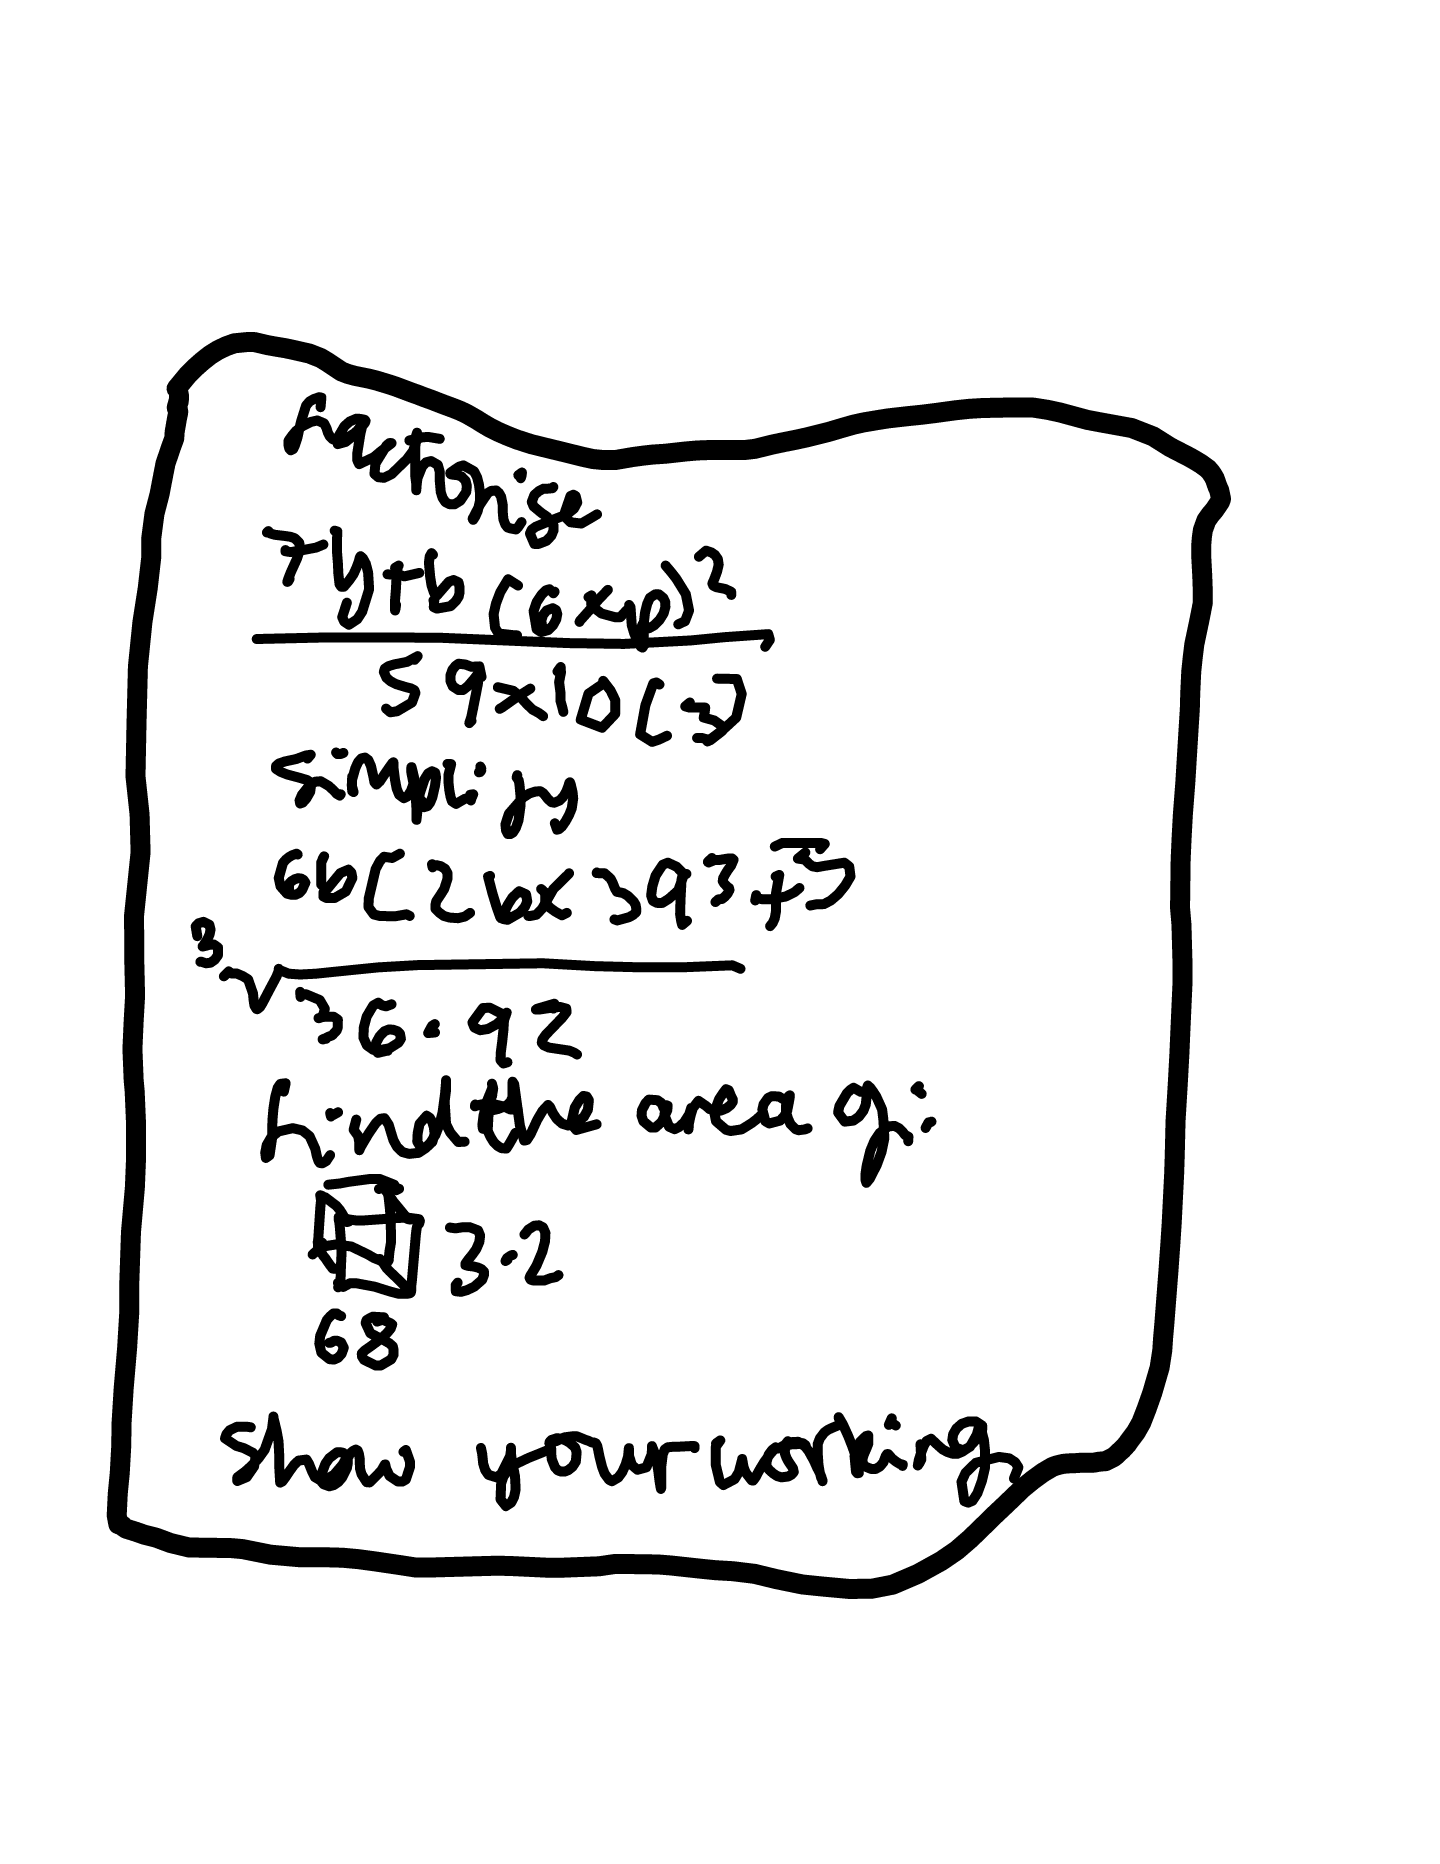 factorise
7y+b(6xp)²
59x10(3)
simplify
6b(2bx393+3)
³√36.92
find the area of:
3.2
68
show your working